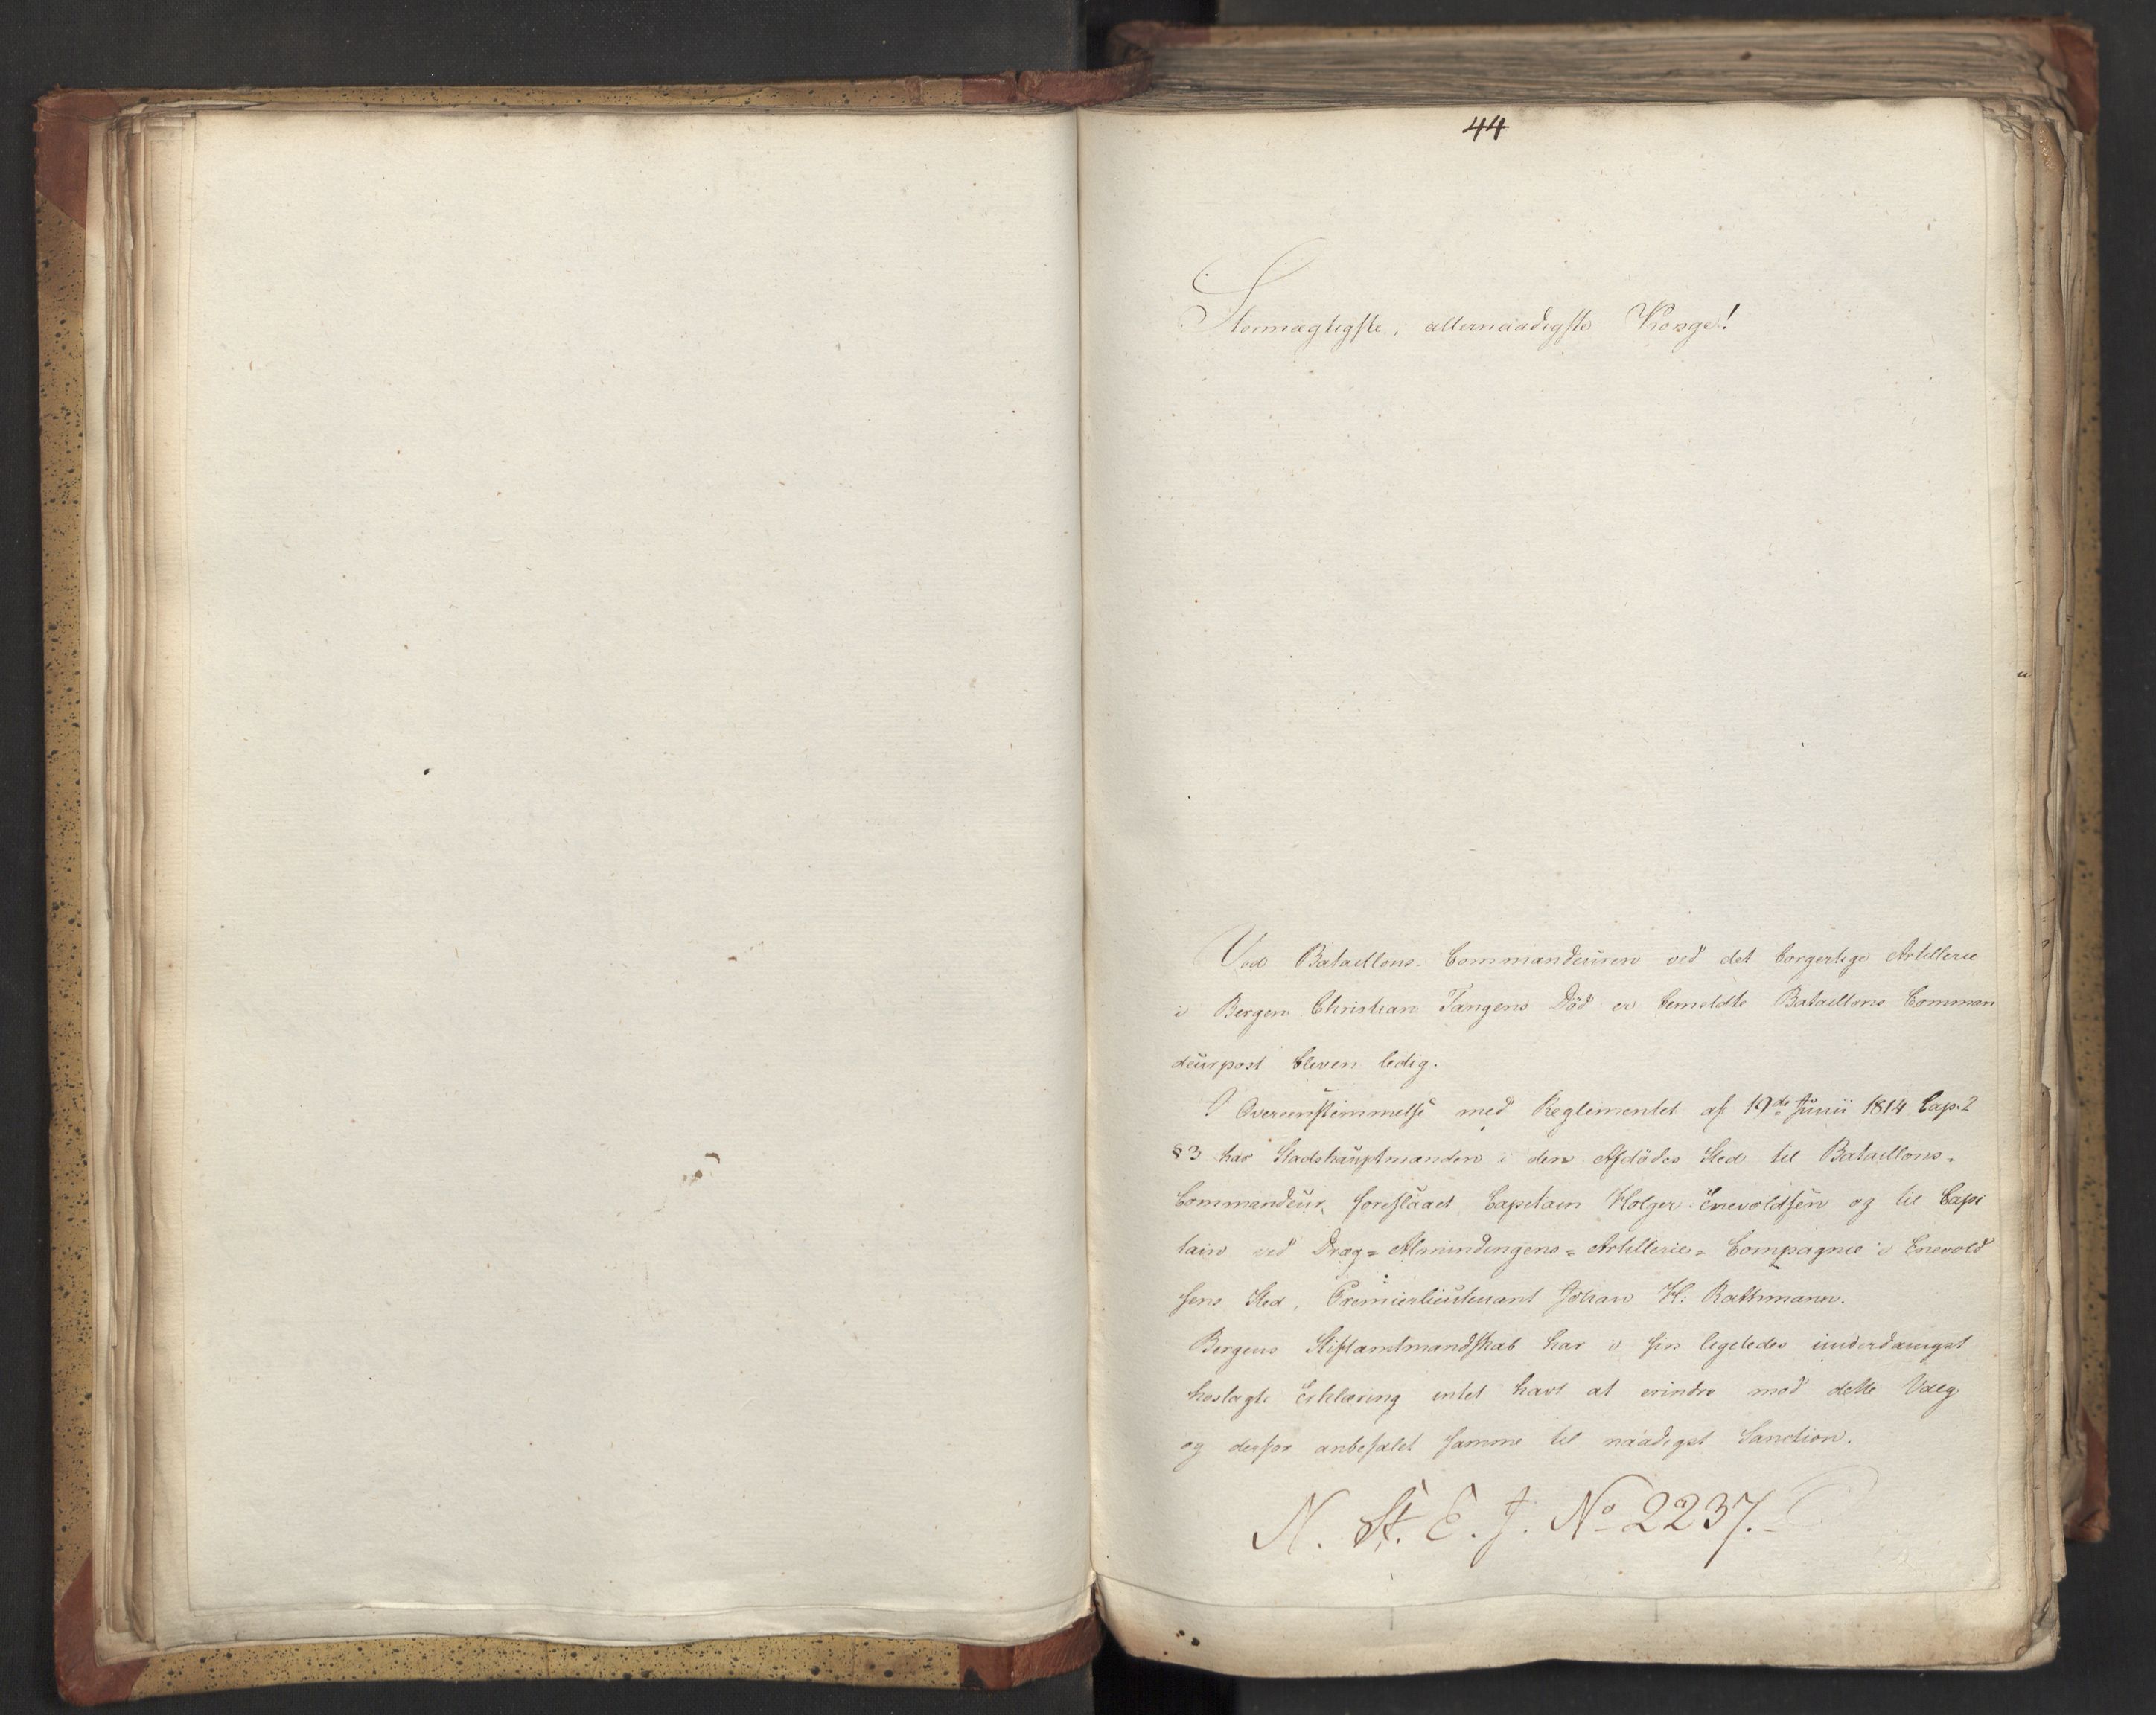 44
Stormægtigste, allernaadigste Konge!
Ved Bataillons-Commandeuren ved det borgerlige Artillerie
i Bergen Christian Tangens Død er bemeldte Bataillons Comman
deurpost bleven ledig.
I Overeenstemmelse med Reglementet af 19de Junii 1814 Cap. 2
§ 3 har Stadshauptmanden i den Afdødes Sted til Bataillons-
Commandeur foreslaaet Capitain Holger Enevoldsen og til Capi
tain ved Dræg=Almindingens=Artillerie=Compagnie i Enevold
sens Sted, Premierlieutenant Johan H: Rathmann.
Bergens Stiftamtmandskab har i sin ligeledes underdanigst
hoslagte Erklæring intet havt at erindre mod dette Valg
og derfor anbefalet samme til naadigst Sanction.
N. St. E. J. No 2237.